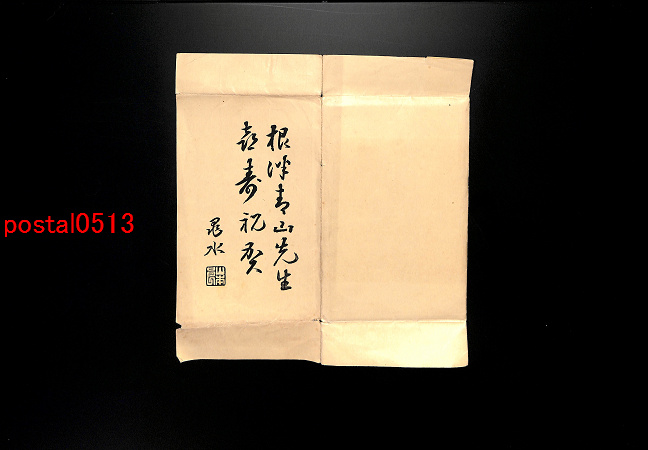 根津青山先生
喜寿祝賀
晁水
postal0513